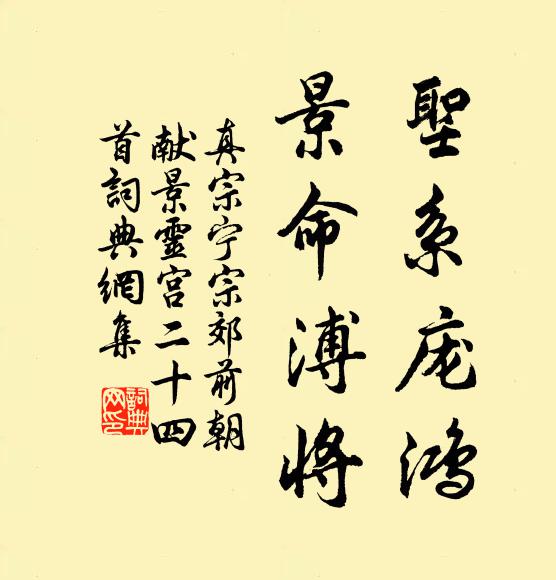 聖系庞鸿
景命溥將
真宗宁宗郊前朝
献景靈宫二十四
首詞典網集
詞典网印